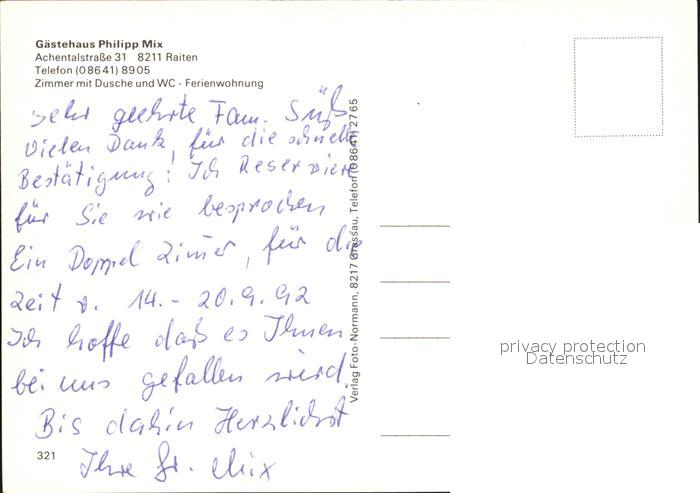 Gästehaus Philipp Mix
Achentalstraße 31 8211 Raiten
Telefon (08641) 8905
Zimmer mit Dusche und WC - Ferienwohnung
Sehr geehrte Fam. Süß
Vielen Dank, für die schnelle
Bestätigung! Ich Reserviere
für Sie wie besprochen
Ein Doppel Zimer, für die
Zeit v. 14.- 20.9.92
Ich hoffe daß es Ihnen
bei uns gefallen wird.
Bis dahin Herzlichst
Ihre Fr. Mix
321
Verlag Foto-Normann, 8217 Grassau, Telefon (08641) 2765
privacy protection
Datenschutz